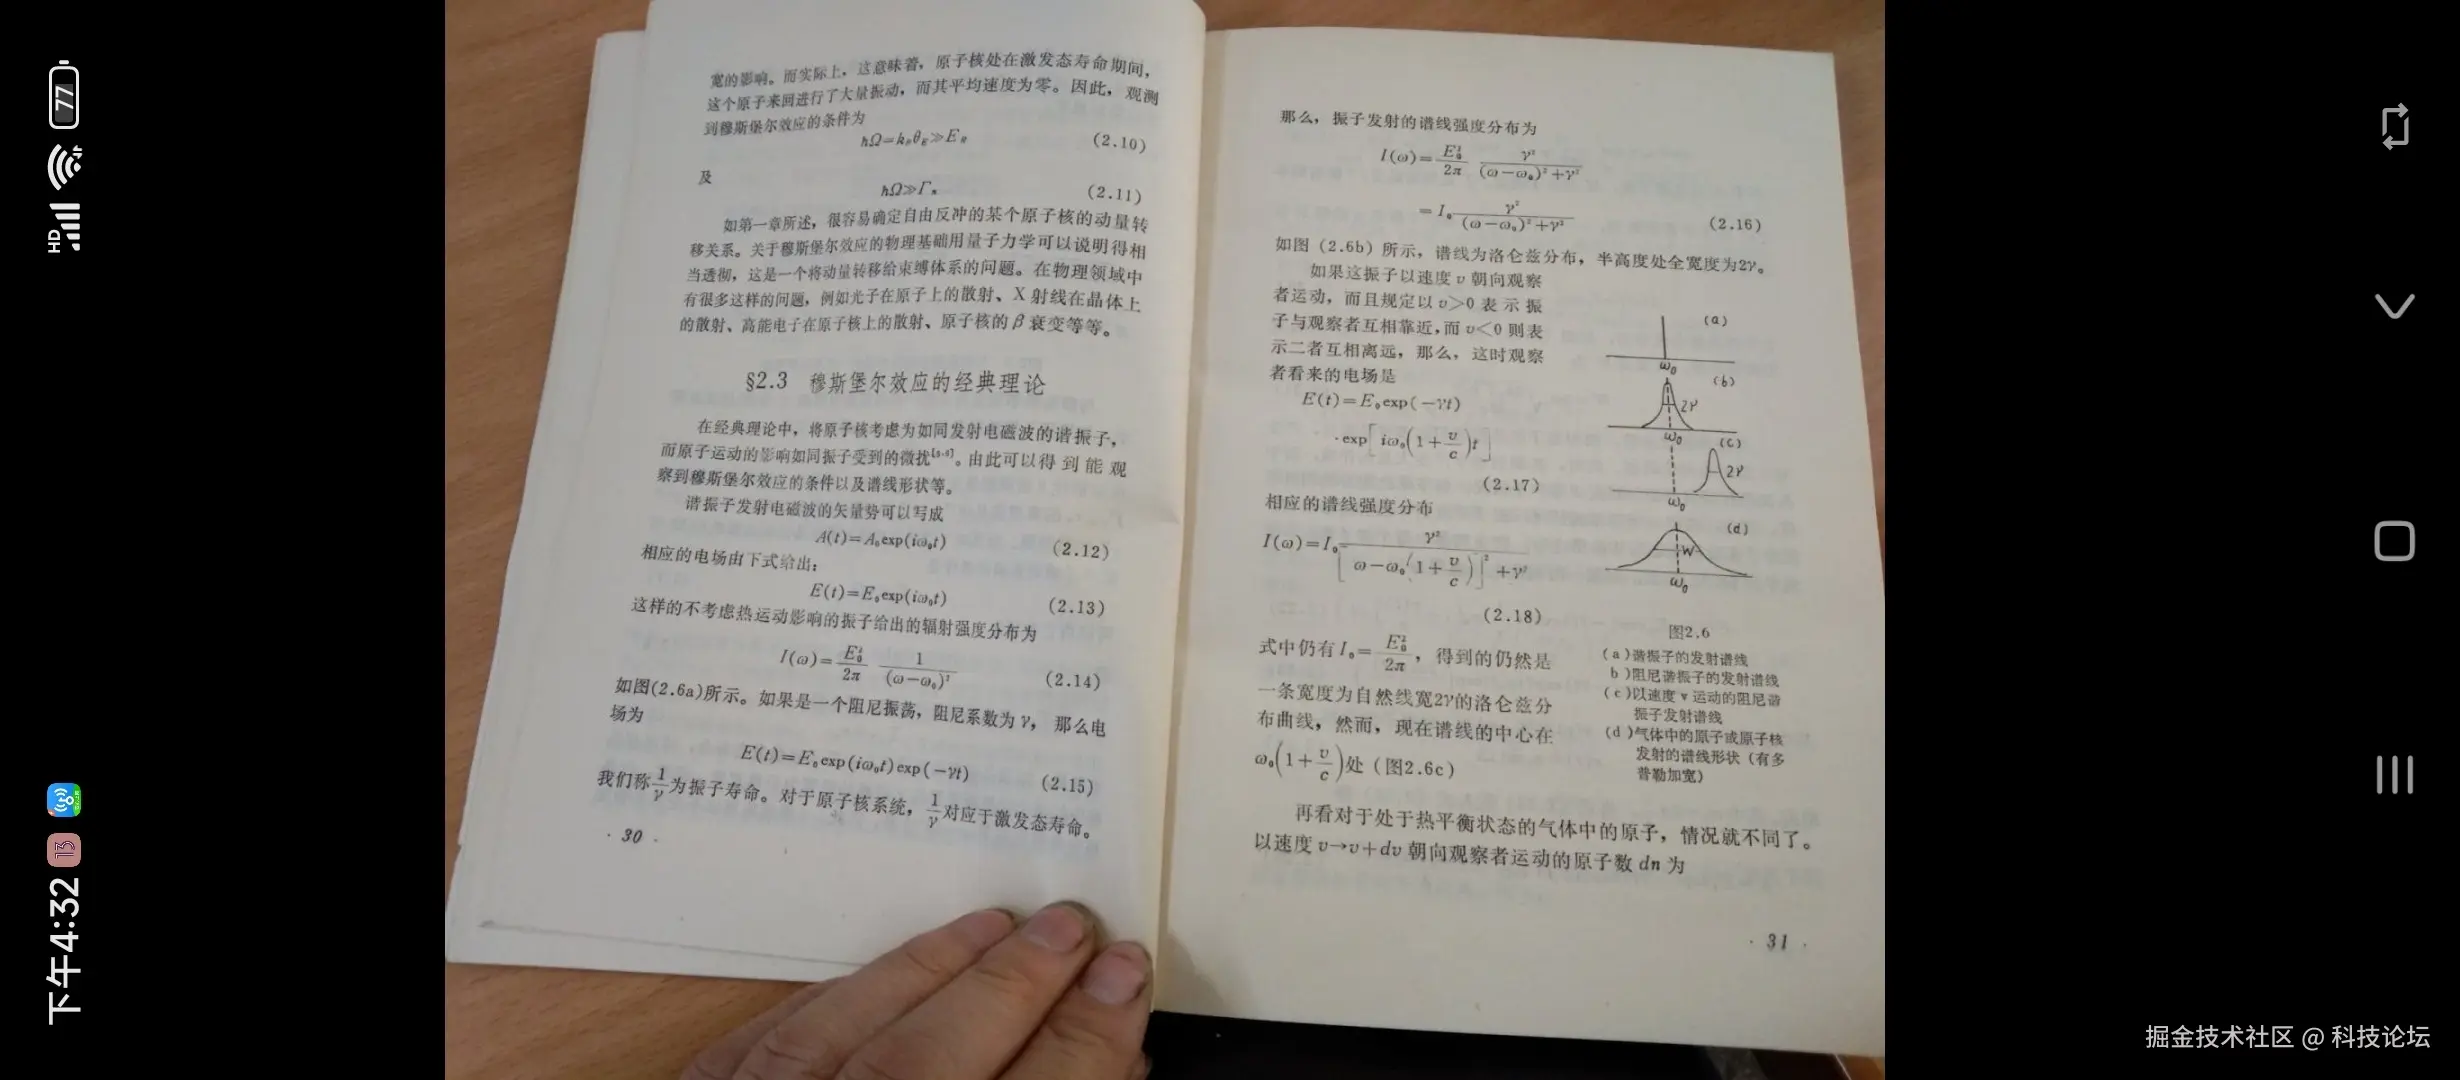 宽的影响。而实际上，这意味着，原子核处在激发态寿命期间，
这个原子来回进行了大量振动，而其平均速度为零。因此，观测
到穆斯堡尔效应的条件为
ħΩ=k_Bθ_E≫E_R (2.10)
及
ħΩ≫Γ_n (2.11)
如第一章所述，很容易确定自由反冲的某个原子核的动量转
移关系。关于穆斯堡尔效应的物理基础用量子力学可以说明得相
当透彻，这是一个将动量转移给束缚体系的问题。在物理领域中
有很多这样的问题，例如光子在原子上的散射、X 射线在晶体上
的散射、高能电子在原子核上的散射、原子核的 β 衰变等等。
§2.3 穆斯堡尔效应的经典理论
在经典理论中，将原子核考虑为如同发射电磁波的谐振子，
而原子运动的影响如同振子受到的微扰。由此可以得到能观
察到穆斯堡尔效应的条件以及谱线形状等。
谐振子发射电磁波的矢量势可以写成
A(t)=A₀exp(iω₀t) (2.12)
相应的电场由下式给出：
E(t)=E₀exp(iω₀t) (2.13)
这样的不考虑热运动影响的振子给出的辐射强度分布为
I(ω)=E₀²/2π 1/(ω−ω₀)² (2.14)
如图(2.6a)所示。如果是一个阻尼振荡，阻尼系数为 γ，那么电
场为
E(t)=E₀exp(iω₀t)exp(−γt) (2.15)
我们称1/γ为振子寿命。对于原子核系统，1/γ对应于激发态寿命。
· 30 ·
那么，振子发射的谱线强度分布为
I(ω)=E₀²/2π γ²/((ω−ω₀)²+γ²)
=I₀ γ²/((ω−ω₀)²+γ²) (2.16)
如图 (2.6b) 所示，谱线为洛仑兹分布，半高度处全宽度为2γ。
如果这振子以速度 v 朝向观察
者运动，而且规定以 v>0 表示振
子与观察者互相靠近，而 v<0 则表
示二者互相离远，那么，这时观察
者看来的电场是
E(t)=E₀exp(−γt)
·exp[iω₀(1+v/c)t]
(2.17)
相应的谱线强度分布
I(ω)=I₀ γ²/([ω−ω₀(1+v/c)]²+γ²)
(2.18)
式中仍有 I₀=E₀²/2π，得到的仍然是
一条宽度为自然线宽2γ的洛仑兹分
布曲线，然而，现在谱线的中心在
ω₀(1+v/c)处 (图2.6c)
(a)
ω₀
(b)
2γ
ω₀
(c)
2γ
ω₀
(d)
W
ω₀
图2.6
(a)谐振子的发射谱线
b)阻尼谐振子的发射谱线
(c)以速度 v 运动的阻尼谐
振子发射谱线
(d)气体中的原子或原子核
发射的谱线形状（有多
普勒加宽）
再看对于处于热平衡状态的气体中的原子，情况就不同了。
以速度 v→v+dv 朝向观察者运动的原子数 dn 为
· 31 ·
下午4:32
13
HD
77
掘金技术社区 @ 科技论坛